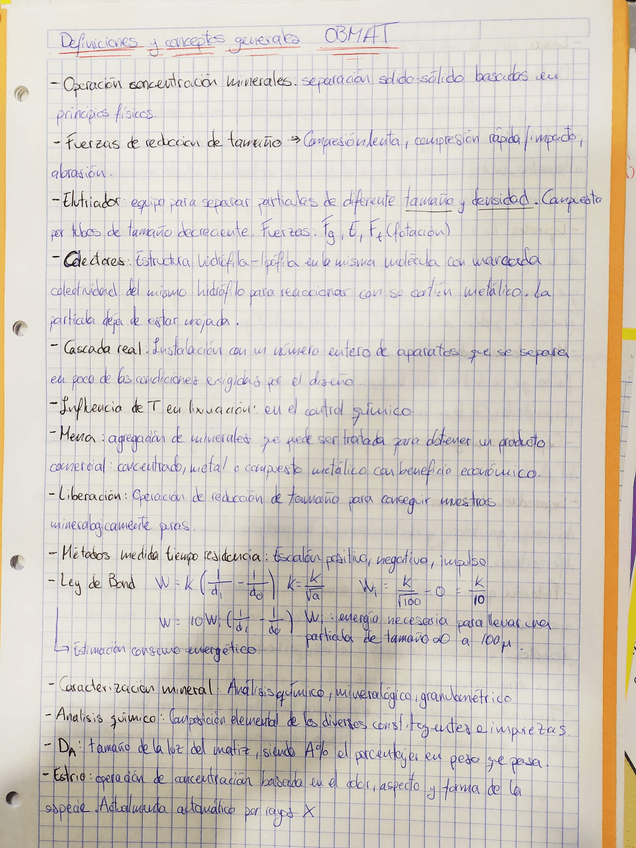 Definiciones y conceptos generales OBMAT
- Operación concentración minerales: separación sólido-sólido basados en
principios físicos.
- Fuerzas de reducción de tamaño → Compresión lenta, compresión rápida/impacto,
abrasión.
- Elutriador: equipo para separar partículas de diferente tamaño y densidad. Compuesto
por tubos de tamaño decreciente. Fuerzas. Fg, E, Ft (flotación)
- Colectores: Estructura hidrófila-lipófila en la misma molécula con marcada
colectividad del mismo hidrófilo para reaccionar con se catión metálico. La
partícula deja de estar mojada.
- Cascada real: Instalación con un número entero de aparatos que se separa
en poco de las condiciones exigidas por el diseño.
- Influencia de T en lixiviación: en el control químico
- Mena: agregación de minerales que puede ser tratada para obtener un producto
comercial: concentrado, metal o compuesto metálico con beneficio económico.
- Liberación: Operación de reducción de tamaño para conseguir muestras
mineralogicamente puras.
- Métodos medida tiempo residencia: Escalón positivo, negativo, impulso
- Ley de Bond W = K (1/d1 - 1/d0) K = K/√a Wi = K/√100 - 0 = K/10
W = 10Wi (1/d1 - 1/d0) Wi: energía necesaria para llevar una
partícula de tamaño ∞ a 100µ.
↳ Estimación consumo energético
- Caracterización mineral: Análisis químico, mineralógico, granulométrico
- Analisis químico: Composición elemental de los diversos constituyentes e impurezas.
- DA: tamaño de la luz del matiz, siendo A% el porcentaje en peso que pasa.
- Estrío: operación de concentración basada en el color, aspecto y forma de la
especie. Actualmente automático por rayos X